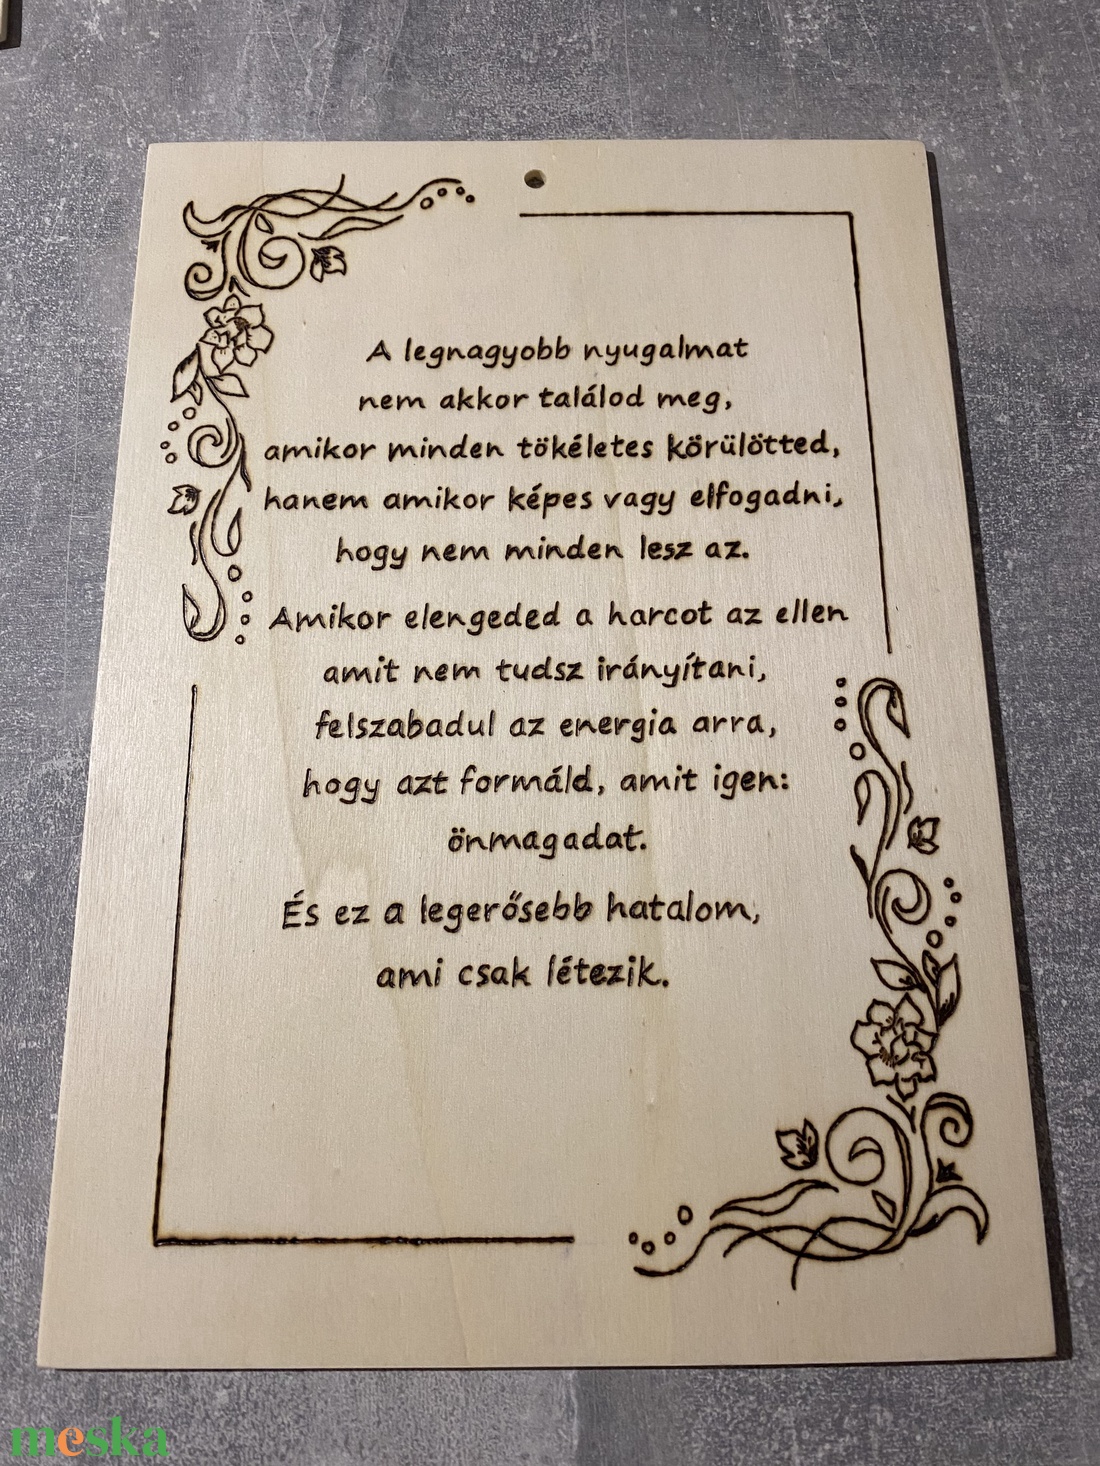 A legnagyobb nyugalmat
nem akkor találod meg,
amikor minden tökéletes körülötted,
hanem amikor képes vagy elfogadni,
hogy nem minden lesz az.
Amikor elengeded a harcot az ellen
amit nem tudsz irányítani,
felszabadul az energia arra,
hogy azt formáld, amit igen:
önmagadat.
És ez a legerősebb hatalom,
ami csak létezik.
meska